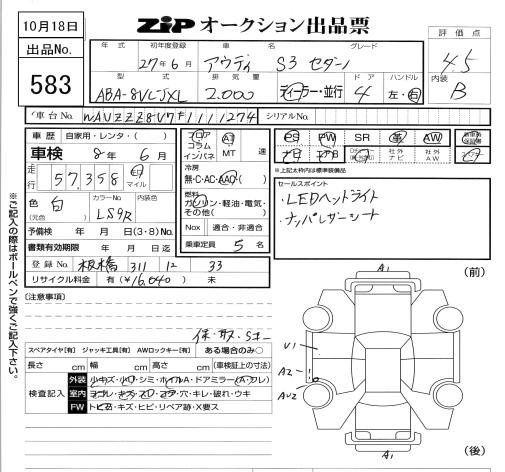 10月18日
ZiP オークション出品票
出品No.
583
年式 初年度登録 車名 グレード
27年6月 アウディ S3 セダン
評価点
4.5
内装
B
型式 排気量 ドア ハンドル
ABA-8VCJXL 2,000 ディーラー・並行 4 左・右
車台No. WAUZZZ8V7F1111274 シリアルNo.
車歴 自家用・レンタ・( )
車検 8年6月
走行 57,358 km マイル
色 白 (元色) カラーNo. LS9R 内装色
予備検 年 月 日(3・8)No.
書類有効期限 年 月 日迄
登録No. 板橋 311 12 33
リサイクル料金 有(¥16,040) 未
フロア コラム インパネ AT MT 速
冷房
無・C・AC・AAC
燃料
ガソリン・軽油・電気・その他( )
Nox 適合・非適合
乗車定員 5名
PS PW SR 革 AW
社外ナビ 社外AW
※上記太枠内は標準装備品
セールスポイント
・LEDヘッドライト
・ナッパレザーシート
※ご記入の際はボールペンで強くご記入下さい。
[注意事項]
スペアタイヤ[有] ジャッキ工具[有] AWロックキー[有] ある場合のみ○
長さ cm 幅 cm 高さ cm (車検証上の寸法)
検査記入
外装 小キズ・小凹・シミ・ホイルA・ドアミラー(A・ワレ)
室内 ヨゴレ・キズ・スレ・コゲ・穴・キレ・破れ・ウキ
FW トビ石・キズ・ヒビ・リペア跡・X要ス
A1
(前)
U1
A2
AU2
A1
(後)